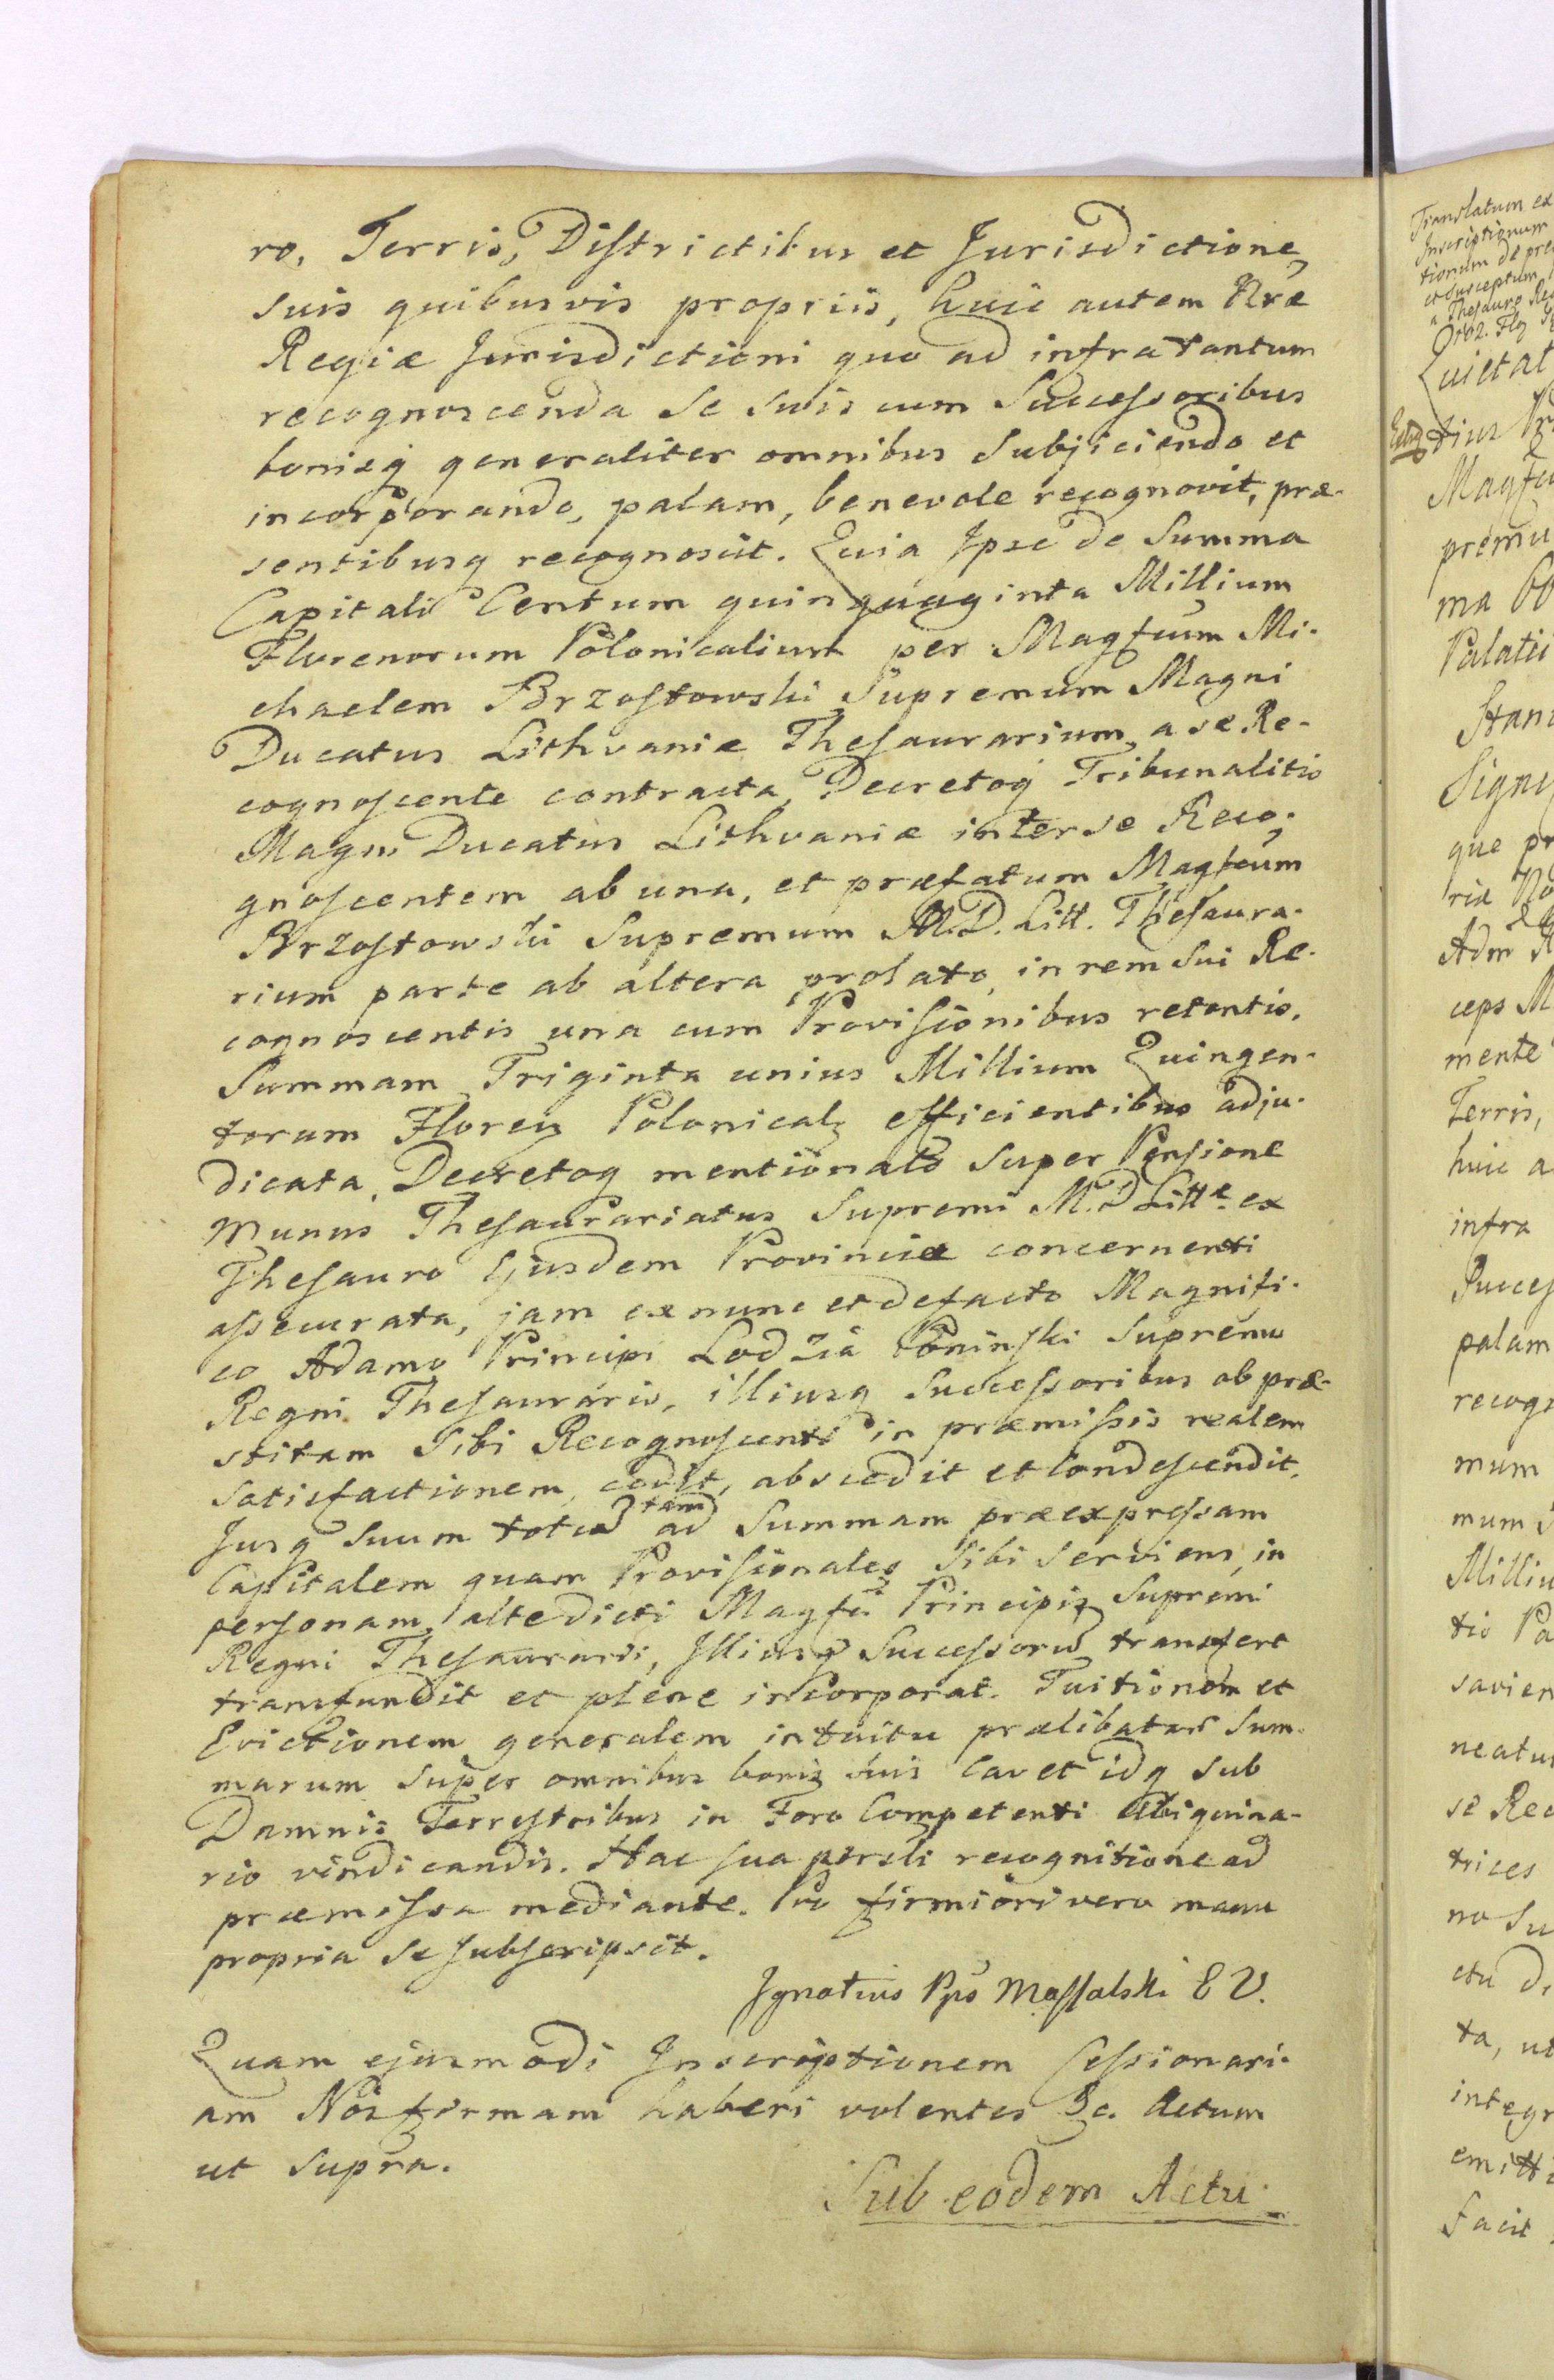 ro, Terris, Districtibus et Jurisdictione,
suis quibusvis propriis, huic autem Nræ
Regiæ Jurisdictioni quo ad infra tantum
recognoscenda se suis cum Successoribus
bonisq generaliter omnibus Subjiciendo et
incorporando, palam, benevole recognovit, præ-
sentibusq recognoscit. Quia Ipse de Summa
Capitali Centum quinquaginta Millium
Florenorum Polonicalium per Magfcum Mi-
chaelem Brzostowski Supremum Magni
Ducatus Lithvaniæ Thesaurarium, a se Re-
cognoscente contracta, Decretoq Tribunalitio
Magni Ducatus Lithvaniæ inter se Reco-
gnoscentem ab una, et præfatum Magfcum
Brzostowski Supremum M.D. Litt. Thesaura-
rium parte ab altera prolato, in rem sui Re-
cognoscentis una cum Provisionibus retentis,
Summam Triginta unius Millium Quingen-
torum Floren Polonical efficientibus adju-
dicata, Decretoq mentionato super Pensione
munus Thesaurariatus Supremi M.D Littæ. ex
Thesauro Ejusdem Provinciæ concernenti
assecurata, jam ex nunc et de facto Magnifi-
co Adamo Principi Lodzia Poninski Supremo
Regni Thesaurario, illiusq Successoribus ob præ-
stitam Sibi Recognoscenti in præmissis realem
Satisfactionem, cedit, abscedit et Condescendit,
Jusq suum totum tam ad Summam præexpressam
Capitalem quam Provisionales Sibi Serviens, in
personam altedicti Magfci Principis Supremi
Regni Thesaurarii, Illiusq Successorum transfert
transfundit et plene incorporat. Tuitionem et
Evictionem generalem intuitu prælibatar Sum-
marum super omnibus bonis suis Cavet idq sub
Damnis Terrestribus in Foro Competenti ubiquina-
rio vindicandis. Hac sua persli recognitione ad
præmissa mediante. Pro firmiori vero manu
propria se subscripsit.
Ignatius Pps Massalski E V.
Quam ejusmodi Inscriptionem Cessionari-
am Nos firmam haberi volentes &c. Actum
ut supra.
Sub eodem Actu.
Translatum ex
Inscriptionum
tionum de pre
et susceptum
a Thesauro Re
Quietat
tius
Magfc
premu
ma
Palati
Stani
Sign
que pr
ria No
Adm R
ceps M
mente
Terris,
huic a
infra
Succes
palam
recogn
mum
mum S
Milliu
tio Pa
savien
neatu
se Rec
trices
no Su
ctu d
ta, ut
integr
emitti
facit